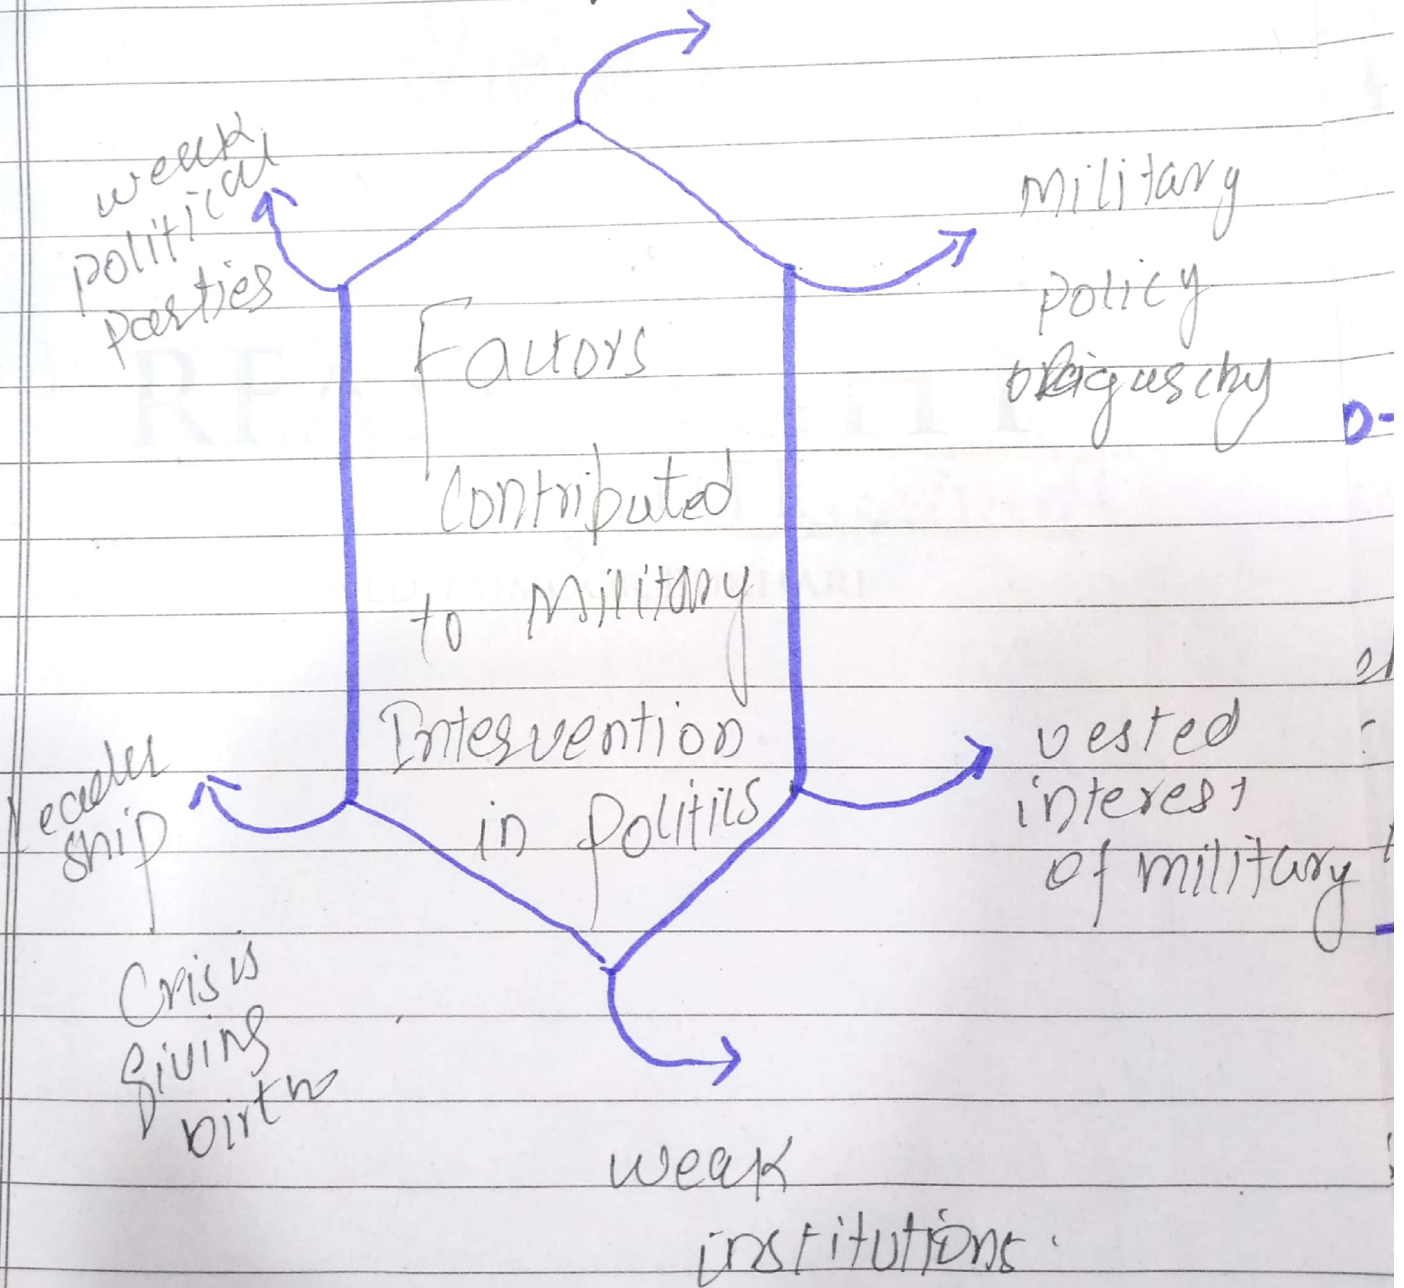 weak
political
parties
military
policy
Factors
Contributed
to Military
Intervention
in Politics
leader
ship
Crisis
giving
birth
vested
interest
of military
weak
institutions.